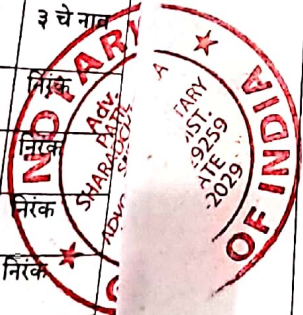 ३ चे नाव
निरंक
निरंक
निरंक
निरंक
NOTAR
OF INDIA
Adv.
SHARAD
TARY
IST.
9259
ATE
-2029